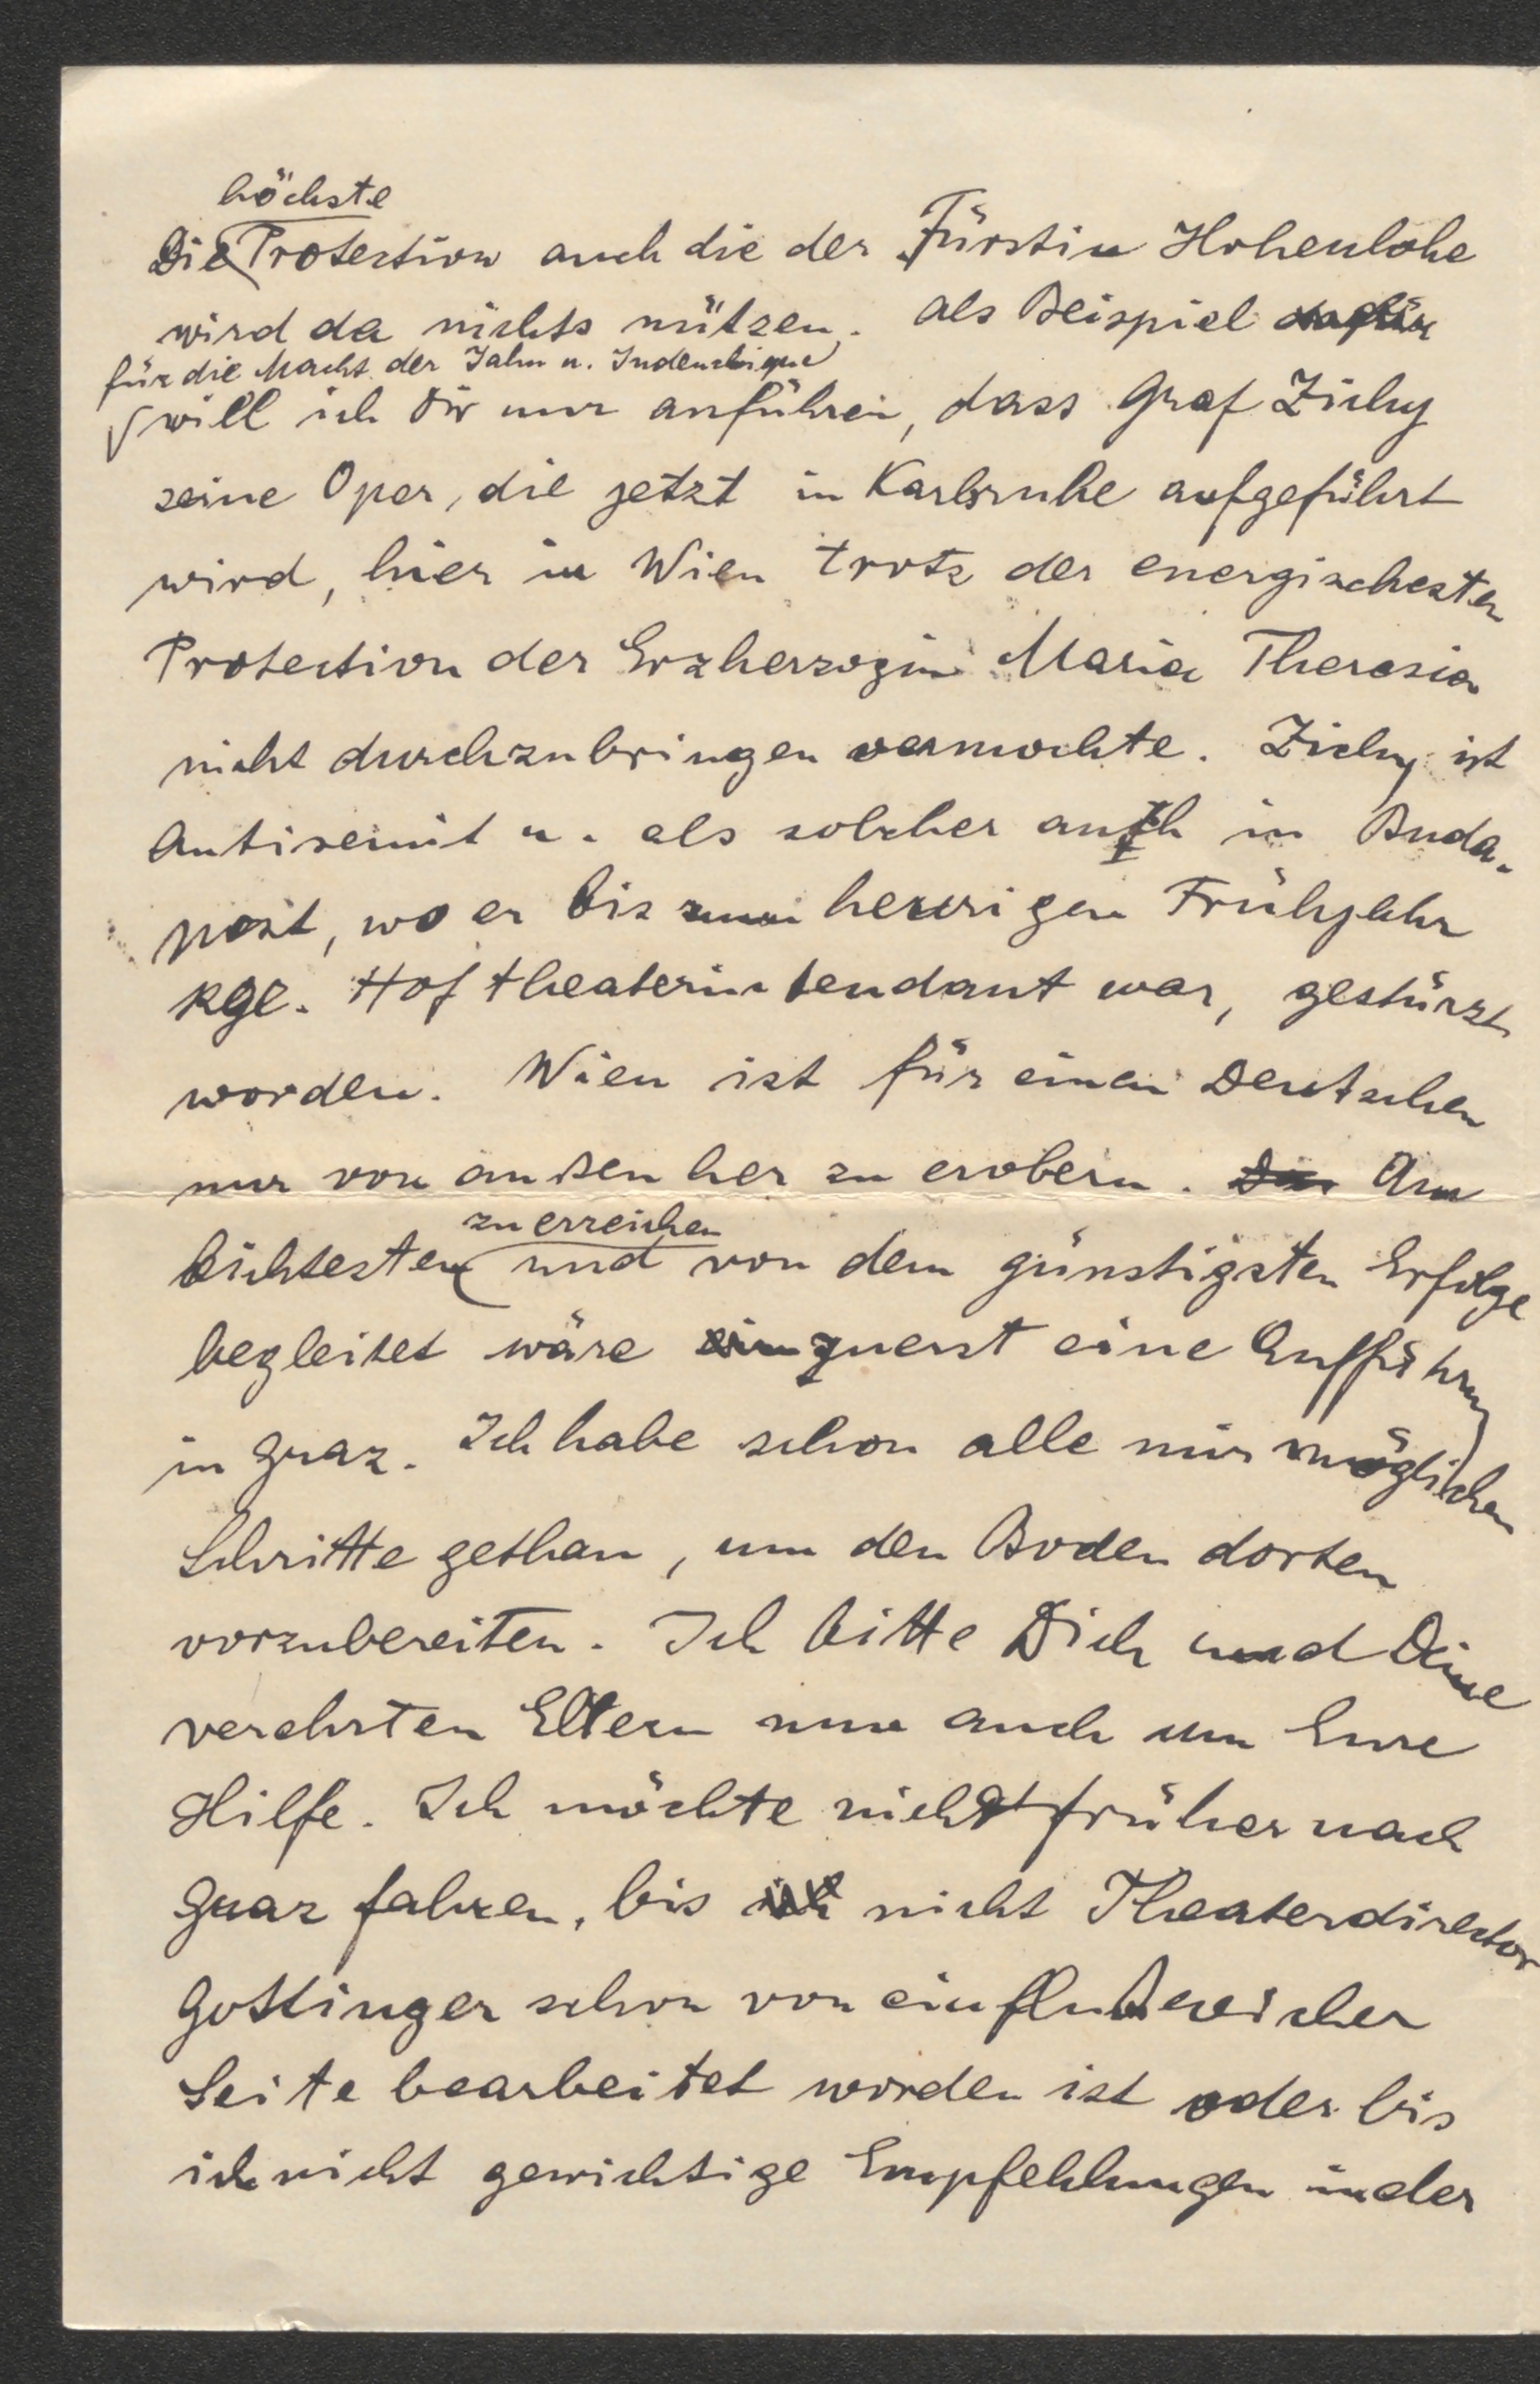 höchste
Die Protection auch die der Fürstin Hohenlohe
wird da nichts nützen. als Beispiel dafür
für die Macht der Jahn u. Judenclique
will ich Dir nur anführen, dass Graf Zichy
seine Oper, die jetzt in Karlsruhe aufgeführt
wird, hier in Wien trotz der energischesten
Protection der Erzherzogin Maria Theresia
nicht durchzubringen vermochte. Zichy ist
Antisemit u. als solcher auch in Buda-
pest, wo er bis zum heurigen Frühjahr
kgl. Hoftheaterintendant war, gestürzt
worden. Wien ist für einen Deutschen
nur von außen her zu erobern. Am
zu erreichen
leichtesten und von dem günstigsten Erfolge
begleitet wäre zuerst eine Aufführung
in Graz. Ich habe schon alle mir möglichen
Schritte gethan, um den Boden dorten
vorzubereiten. Ich bitte Dich und Deine
verehrten Eltern nun auch um Eure
Hilfe. Ich möchte nicht früher nach
Graz fahren, bis nicht Theaterdirector
Gottinger schon von einflußreicher
Seite bearbeitet worden ist oder bis
ich nicht gewichtige Empfehlungen in der